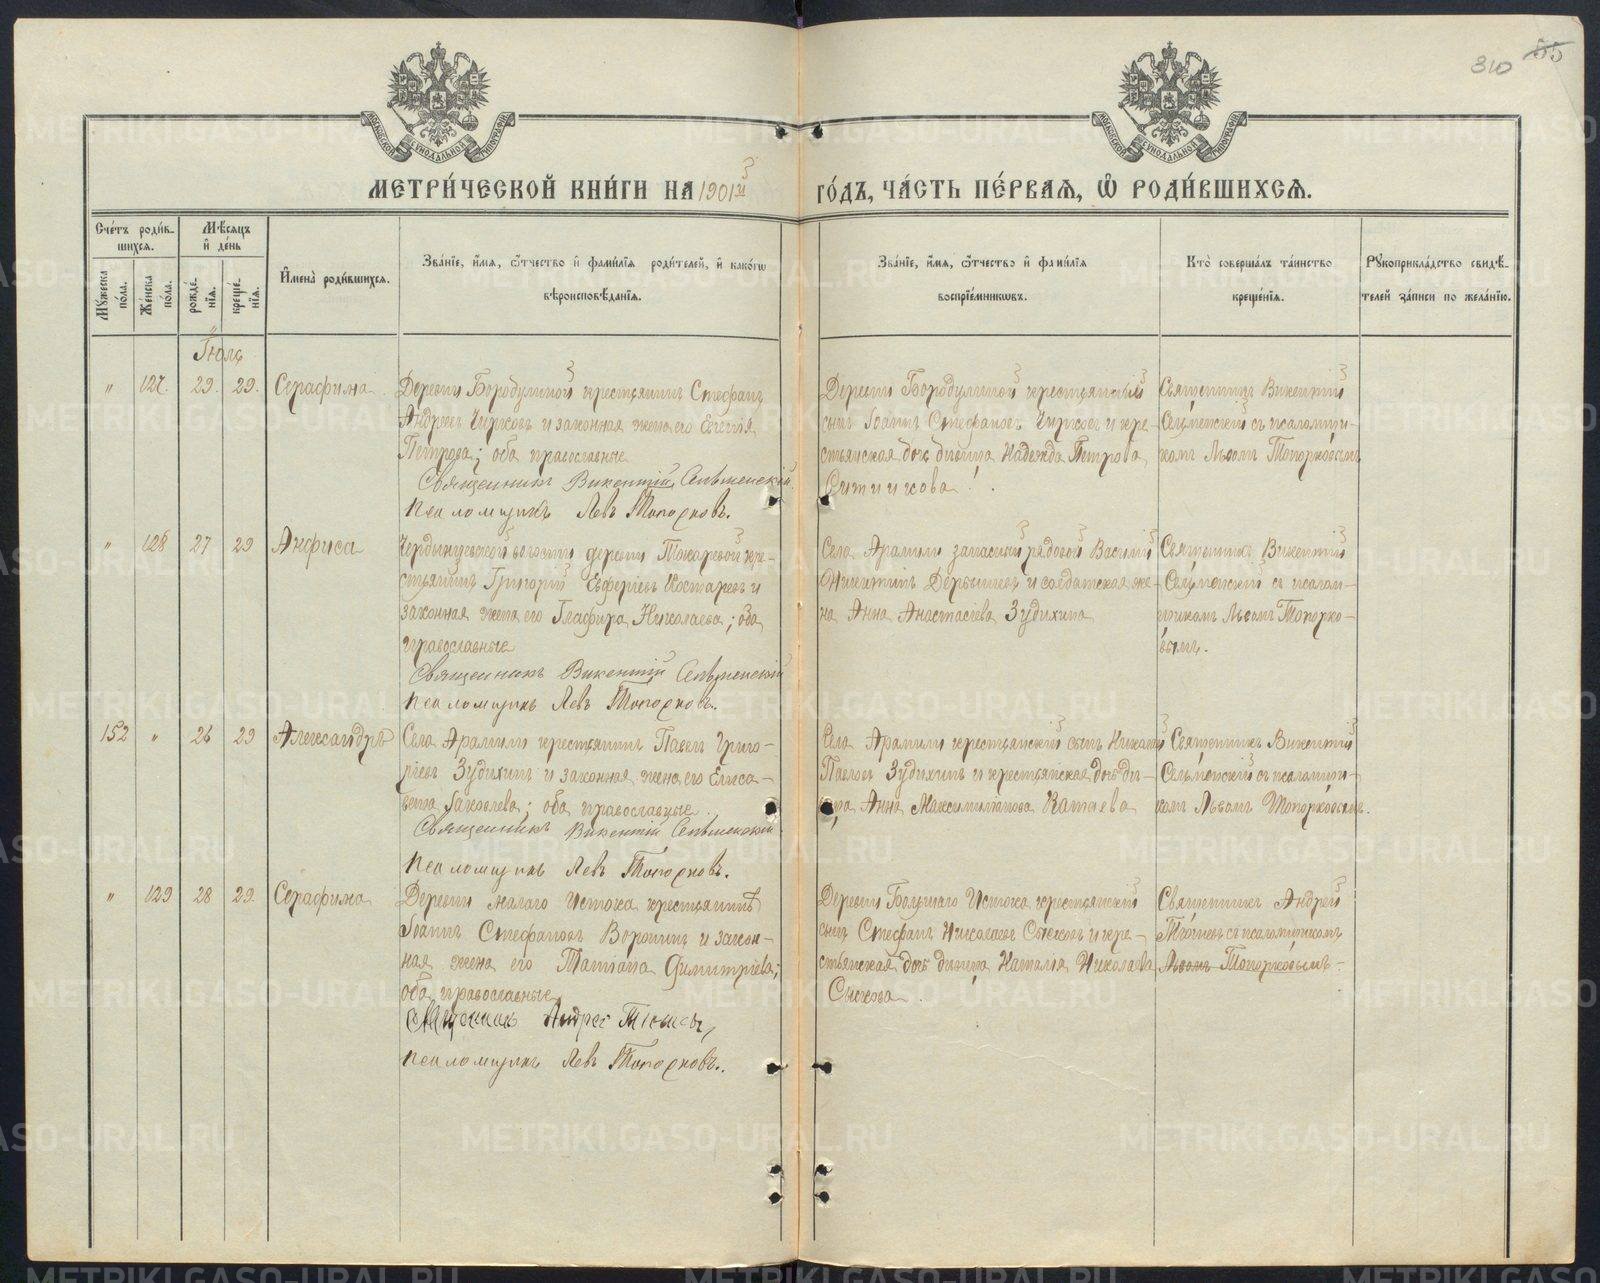 310 55
МОСКОВСКОЙ СѴНОДАЛЬНОЙ ТИПОГРАФІИ
МОСКОВСКОЙ СѴНОДАЛЬНОЙ ТИПОГРАФІИ
МЕТРИ́ЧЕСКОЙ КНИ́ГИ НА 1901й
ГО́ДЪ, ЧА́СТЬ ПЕ́РВАѦ, Ѽ РОДИ́ВШИХСѦ.
Сче́тъ роди́в-
шихся.
Мѣ́сяцъ
и҆ де́нь
Му́жеска по́ла.
Же́нска по́ла.
рожде́нїя.
креще́нїя.
И҆мена̀ роди́вшихся.
Зва́нїе, и҆́мя, ѻ҆́тчество и҆ фами́лїя роди́телей, и҆ како́гѡ
вѣроисповѣ́данїя.
Зва́нїе, и҆́мя, ѻ҆́тчество и҆ фами́лїя
воспрїе́мниковъ.
Кто̀ соверша́лъ та́инство
креще́нїя.
Рꙋкоприкла́дство свидѣ́-
телей за́писи по жела́нїю.
Іюль
" 127. 29. 29. Серафима
Деревни Бородулиной крестьянинъ Стефанъ
Андреевъ Чирковъ и законная жена его Евгенія
Петрова; оба православные
Священникъ Викентій Сельменскій
Псаломщикъ Левъ Топорковъ.
Деревни Бородулиной крестьянскій
сынъ Іоаннъ Стефановъ Чирковъ и кре-
стьянская дочь дѣвица Надежда Петрова
Ситникова.
Священникъ Викентій
Сельменскій съ псаломщи-
комъ Львомъ Топорковымъ
" 128 27 29 Анфиса
Чердынцевской волости деревни Токаревой кре-
стьянинъ Григорій Евфиміевъ Костаревъ и
законная жена его Глафира Николаева; оба
православные
Священникъ Викентій Сельменскій
Псаломщикъ Левъ Топорковъ.
Села Арамили запасный рядовой Василій
Никитинъ Дерышевъ и солдатская же-
на Анна Анастасіева Зудихина
Священникъ Викентій
Сельменскій съ псалом-
щикомъ Львомъ Топорко-
вымъ.
152 " 26 29 Александръ
Села Арамили крестьянинъ Павелъ Григо-
ріевъ Зудихинъ и законная жена его Елиса-
вета Іаковлева; оба православные
Священникъ Викентій Сельменскій
Псаломщикъ Левъ Топорковъ.
Села Арамили крестьянскій сынъ Николай
Павловъ Зудихинъ и крестьянская дочь дѣ-
вица Анна Максимиліанова Катаева
Священникъ Викентій
Сельменскій съ псаломщи-
комъ Львомъ Топорковымъ.
" 129 28 29. Серафима
Деревни Малаго Истока крестьянинъ
Іоаннъ Стефановъ Воронинъ и закон-
ная жена его Татіана Димитріева;
оба православные
Священникъ Андрей
Псаломщикъ Левъ Топорковъ.
Деревни Большаго Истока крестьянскій
сынъ Стефанъ Николаевъ Сысковъ и кре-
стьянская дочь дѣвица Наталія Николаева
Сыскова.
Священникъ Андрей
съ псаломщикомъ
Львомъ Топорковымъ.
METRIKI.GASO-URAL.RU